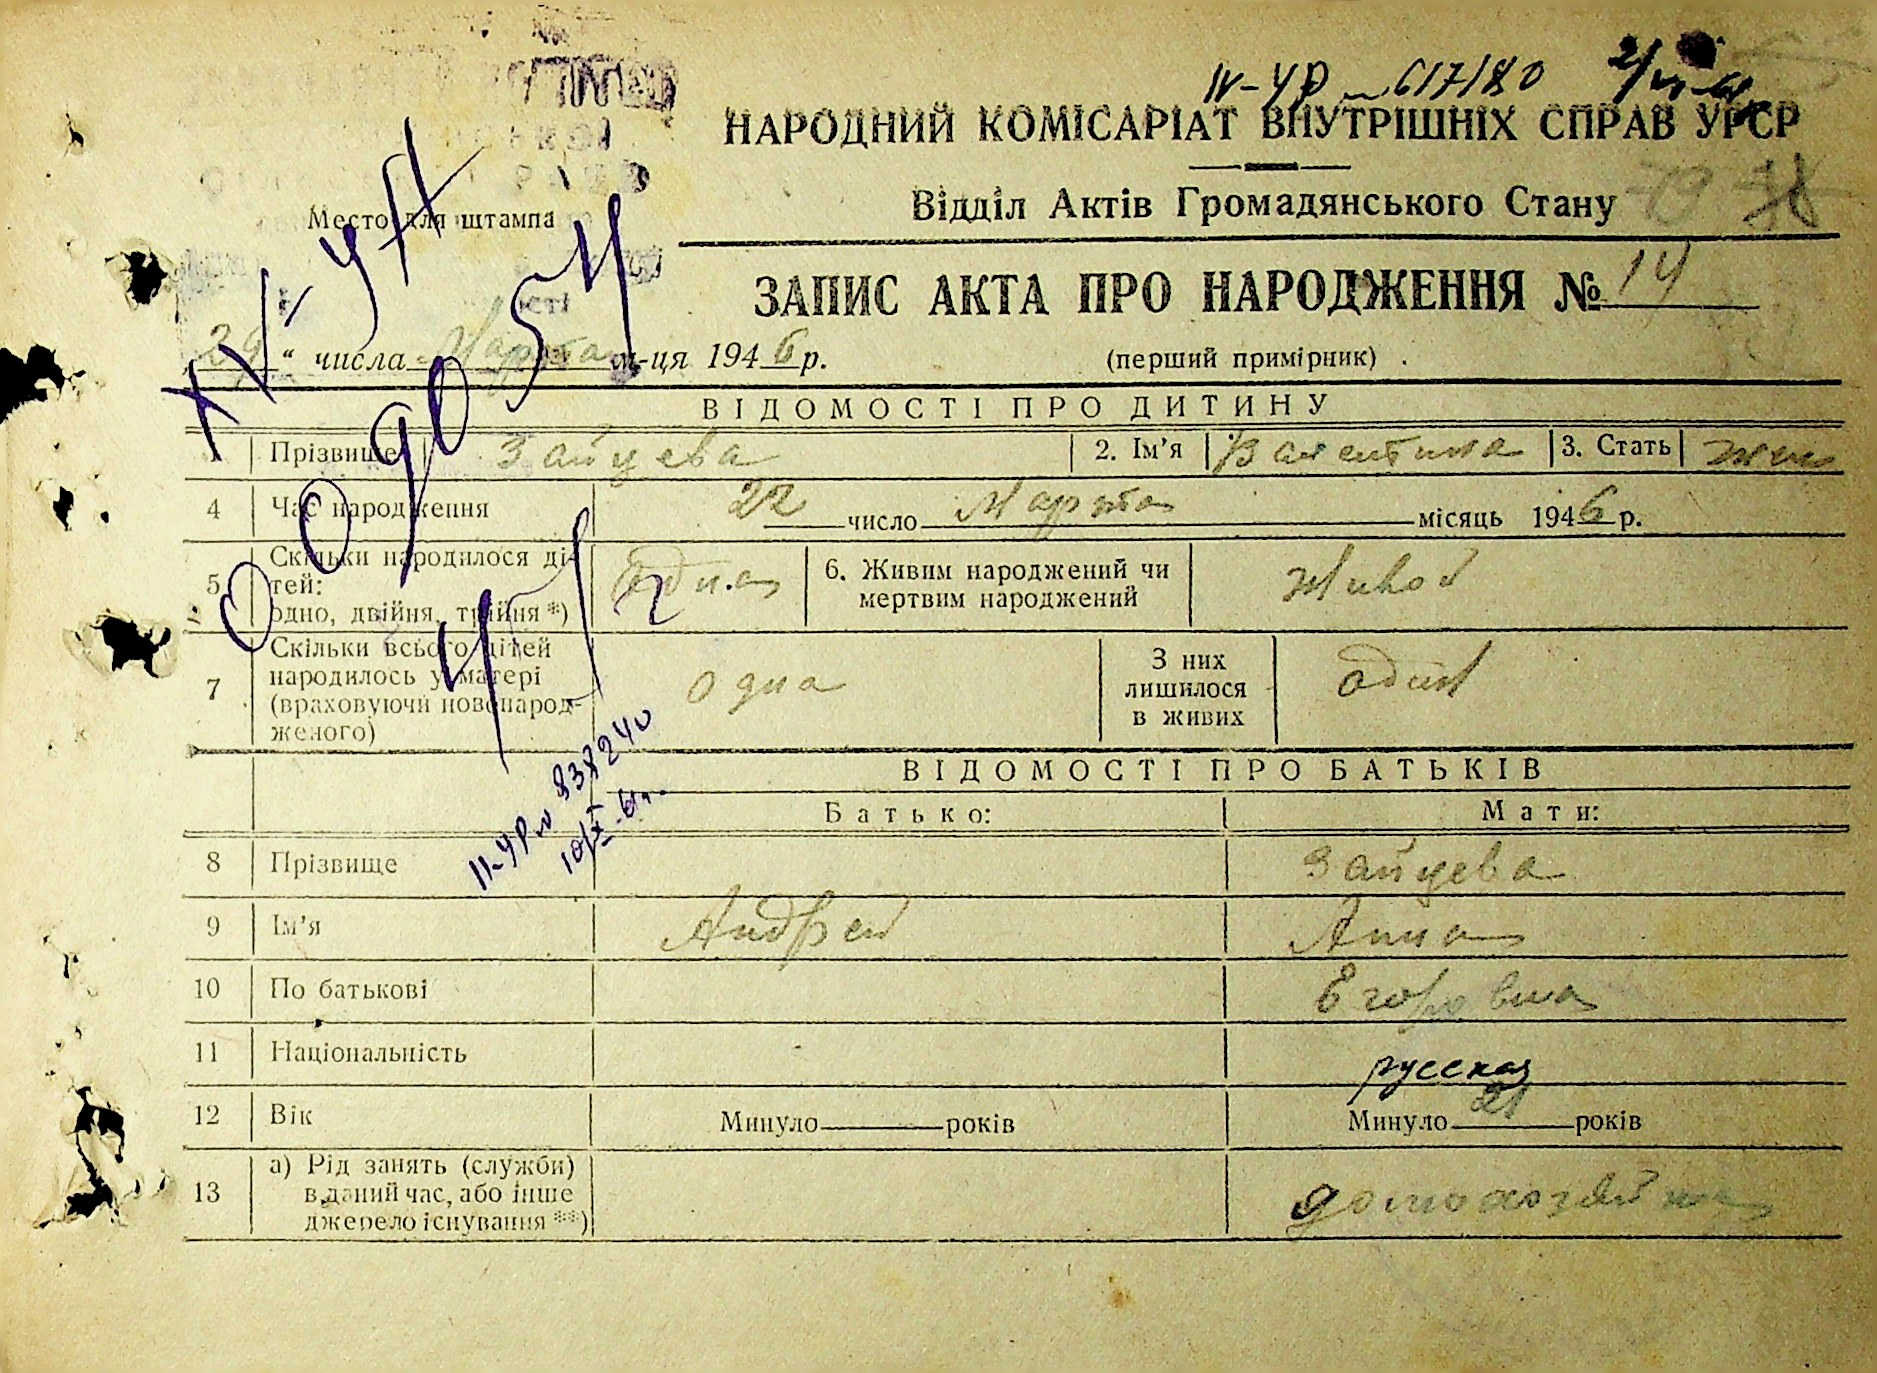 IV-УР № 617180
НАРОДНИЙ КОМІСАРІАТ ВНУТРІШНІХ СПРАВ УРСР
Відділ Актів Громадянського Стану
Место для штампа
ЗАПИС АКТА ПРО НАРОДЖЕННЯ № 14
29 " числа Марта м-ця 1946 р. (перший примірник)
ВІДОМОСТІ ПРО ДИТИНУ
1 Прізвище Зайцева 2. Ім'я Валентина 3. Стать жен
4 Час народження 22 число Марта місяць 1946 р.
5 Скільки народилося ді-
тей:
одно, двійня, трійня *) Одна 6. Живим народжений чи
мертвим народжений Живой
7 Скільки всього дітей
народилось у матері
(враховуючи новонарод-
женого) Одна З них
лишилося
в живих один
ВІДОМОСТІ ПРО БАТЬКІВ
Батько: Мати:
II-УР № 838240
8 Прізвище Зайцева
9 Ім'я Андрей Анна
10 По батькові Егоровна
11 Національність русская
12 Вік Минуло років Минуло 21 років
13 а) Рід занять (служби)
в даний час, або інше
джерело існування **) домохозяйка